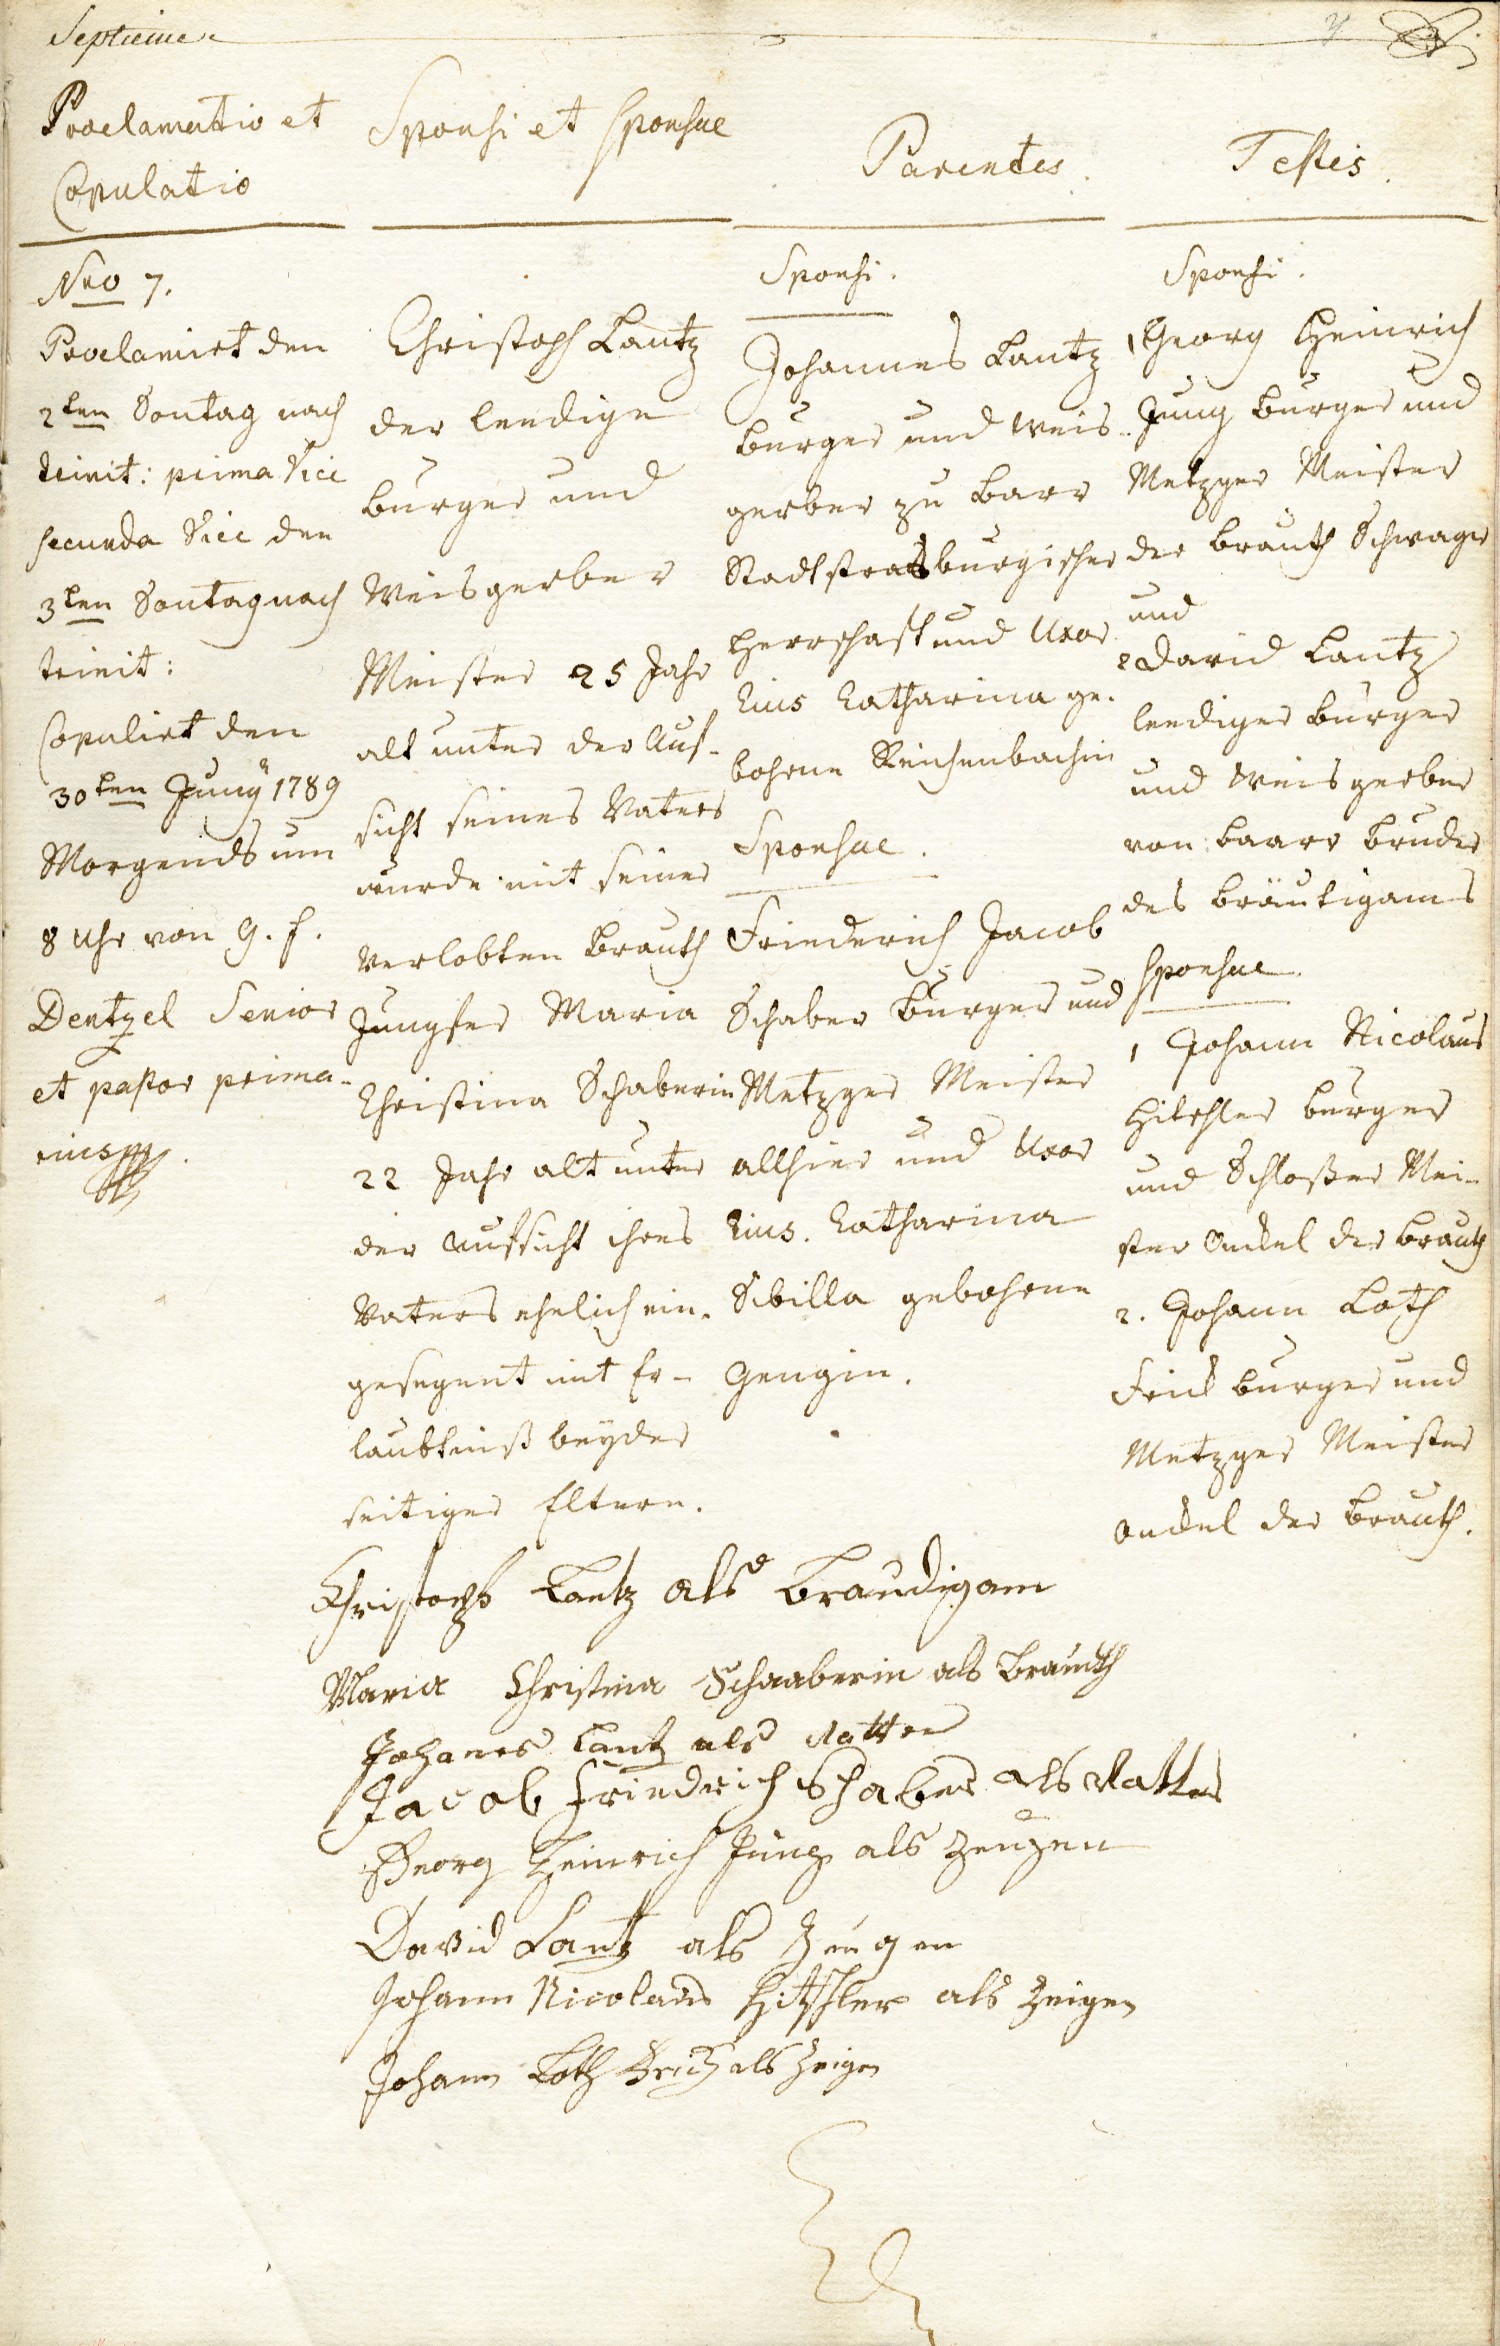 Septieme
Proclamatio et
Copulatio
Sponsi et sponsae
Parentes.
Testes.
Nro 7.
Proclamirt den
2ten Sontag nach
trinit: prima Vice
secunda Vice den
3ten Sontag nach
trinit:
Copulirt den
30ten Juny 1789
Morgends um
8 Uhr von G. F.
Dentzel Senior
et pastor prima-
rius
Christoph Lantz
der leedige
burger und
Weisgerber
Meister 25 Jahr
alt unter der Auf-
sicht seines Vaters
wurde mit seiner
Verlobten Brauth
Jungfer Maria
Christina Schaberin
22 Jahr alt unter
der Aufsicht ihres
Vaters ehelich ein-
gesegent mit Er-
laubtniß beyder
seitiger Eltern.
Sponsi.
Johannes Lantz
burger und Weis-
gerber zu Barr
Stadtstrasburgischer
Herrschaft und Uxor
Eius Catharina ge-
bohrne Reichenbachin
Sponsae.
Friederich Jacob
Schaber Burger und
Metzger Meister
allhier und Uxor
Eius. Catharina
Sibilla gebohrne
Gengin.
Sponsi.
1 Georg Heinrich
Jung burger und
Metzger Meister
der Brauth Schwager
und
2 David Lantz
leediger burger
und Weisgerber
von Baarr bruder
des bräutigams
sponsae.
1 Johann Nicolaus
Hitschler burger
und Schloßer Mei-
ster Onckel der Brauth
2. Johann Loth
Frick burger und
Metzger Meister
Onckel der Brauth.
Christoph Lantz als Braudigam
Maria Christina Schaaberin als Brauth
Johanes Lantz als Vatter
Jacob Friedrich Schaber als Vatter
Georg Heinrich Jung als Zeugen
David Lantz als Zeugen
Johann Nicolaus Hitschler als Zeigen
Johann Loth Frick als Zeigen